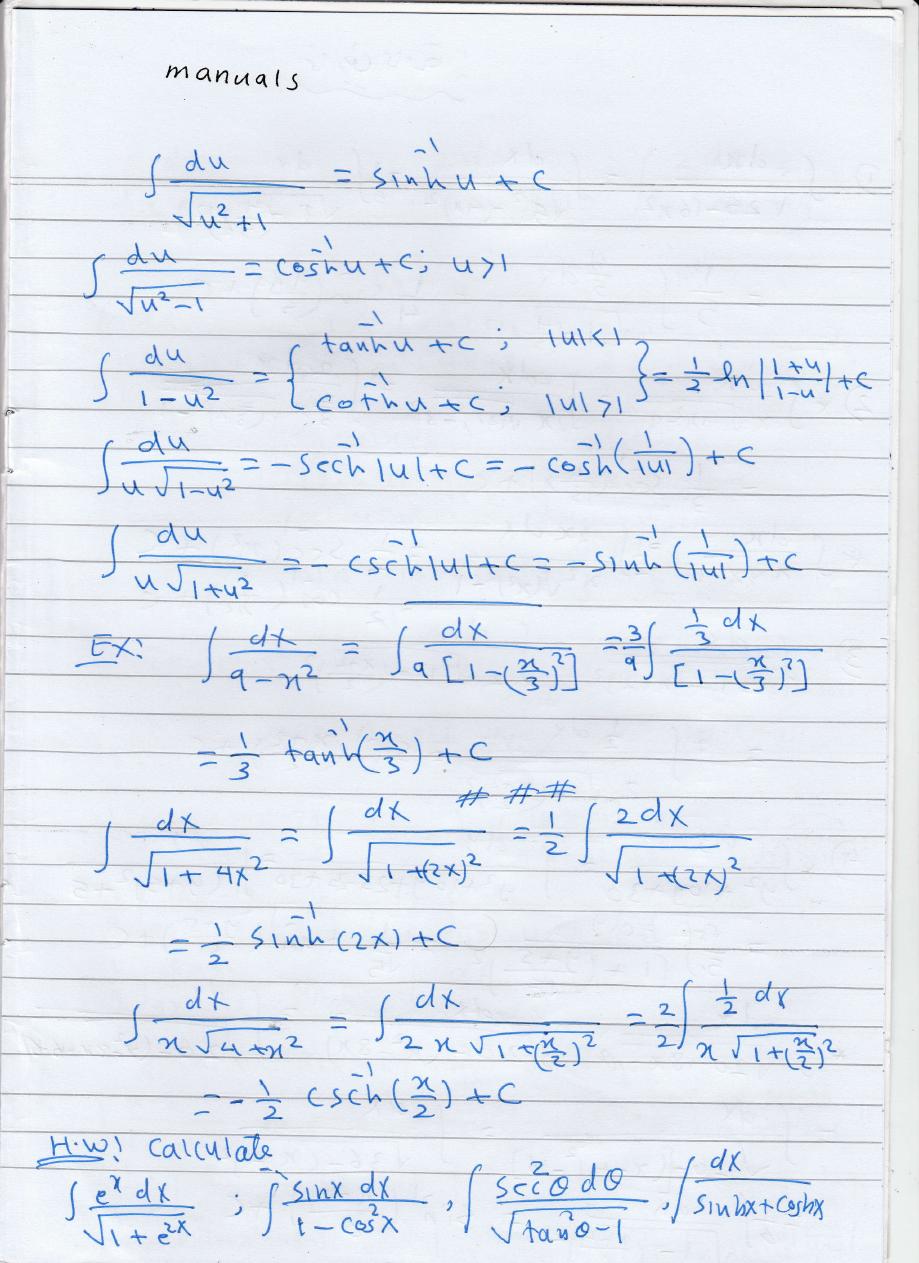 manuals
∫ du/√(u²+1) = sinh⁻¹ u + c
∫ du/√(u²-1) = cosh⁻¹ u + c; u>1
∫ du/(1-u²) = { tanh⁻¹ u + c ; |u|<1
coth⁻¹ u + c ; |u|>1 } = 1/2 ln |(1+u)/(1-u)| + c
∫ du/(u√(1-u²)) = - sech⁻¹ |u| + c = - cosh⁻¹ (1/|u|) + c
∫ du/(u√(1+u²)) = - csch⁻¹ |u| + c = - sinh⁻¹ (1/|u|) + c
Ex: ∫ dx/(9-x²) = ∫ dx/(9[1-(x/3)²]) = 3/9 ∫ (1/3 dx)/[1-(x/3)²]
= 1/3 tanh⁻¹(x/3) + c
# # #
∫ dx/√(1+4x²) = ∫ dx/√(1+(2x)²) = 1/2 ∫ 2dx/√(1+(2x)²)
= 1/2 sinh⁻¹ (2x) + c
∫ dx/(x√(4+x²)) = ∫ dx/(2x√(1+(x/2)²)) = 2/2 ∫ (1/2 dx)/(x√(1+(x/2)²))
= - 1/2 csch⁻¹ (x/2) + c
H.W: Calculate
∫ eˣ dx/√(1+e²ˣ) ; ∫ sinx dx/(1-cos²x) , ∫ sec²θ dθ/√(tan²θ-1) , ∫ dx/(sinhx+coshx)